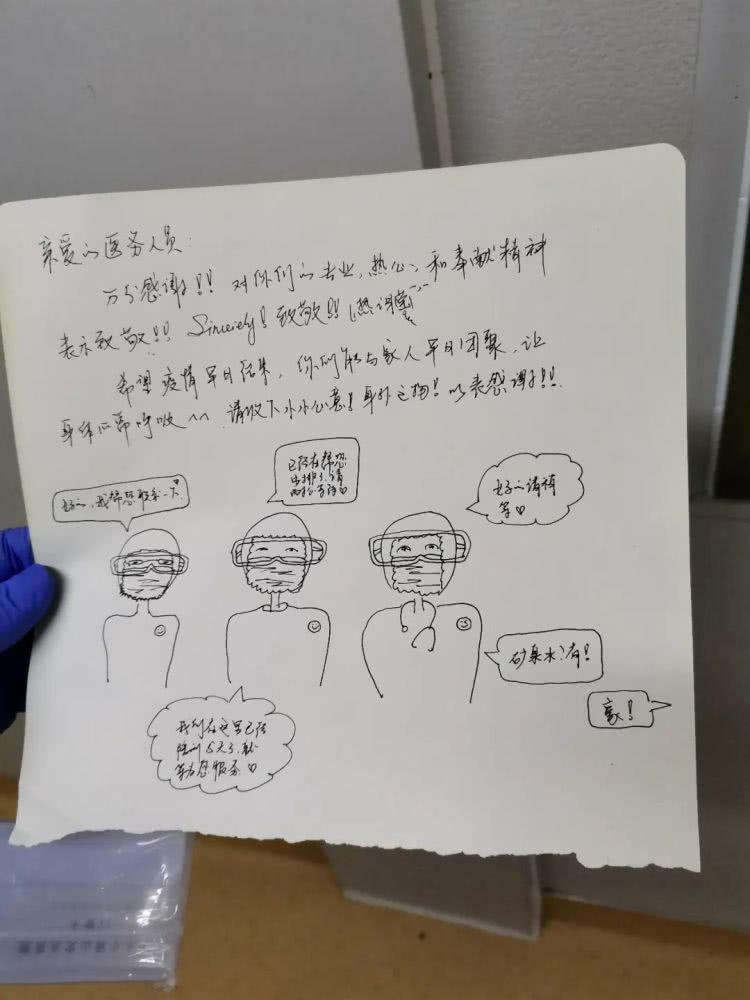 亲爱的医务人员:
万分感谢!! 对你们的专业,热心,和奉献精神
表示致敬!! Sincerely! 致敬!!
希望疫情早日结束,你们能与家人早日团聚,让
身体正常呼吸^^ 请收下小小心意!身外之物!以表感谢!!!
好的,我帮您联系一下
已经在帮您
安排了,请
等待
好的请稍
等
矿泉水?有!
我们在这里已经
5天了,就
等为您服务